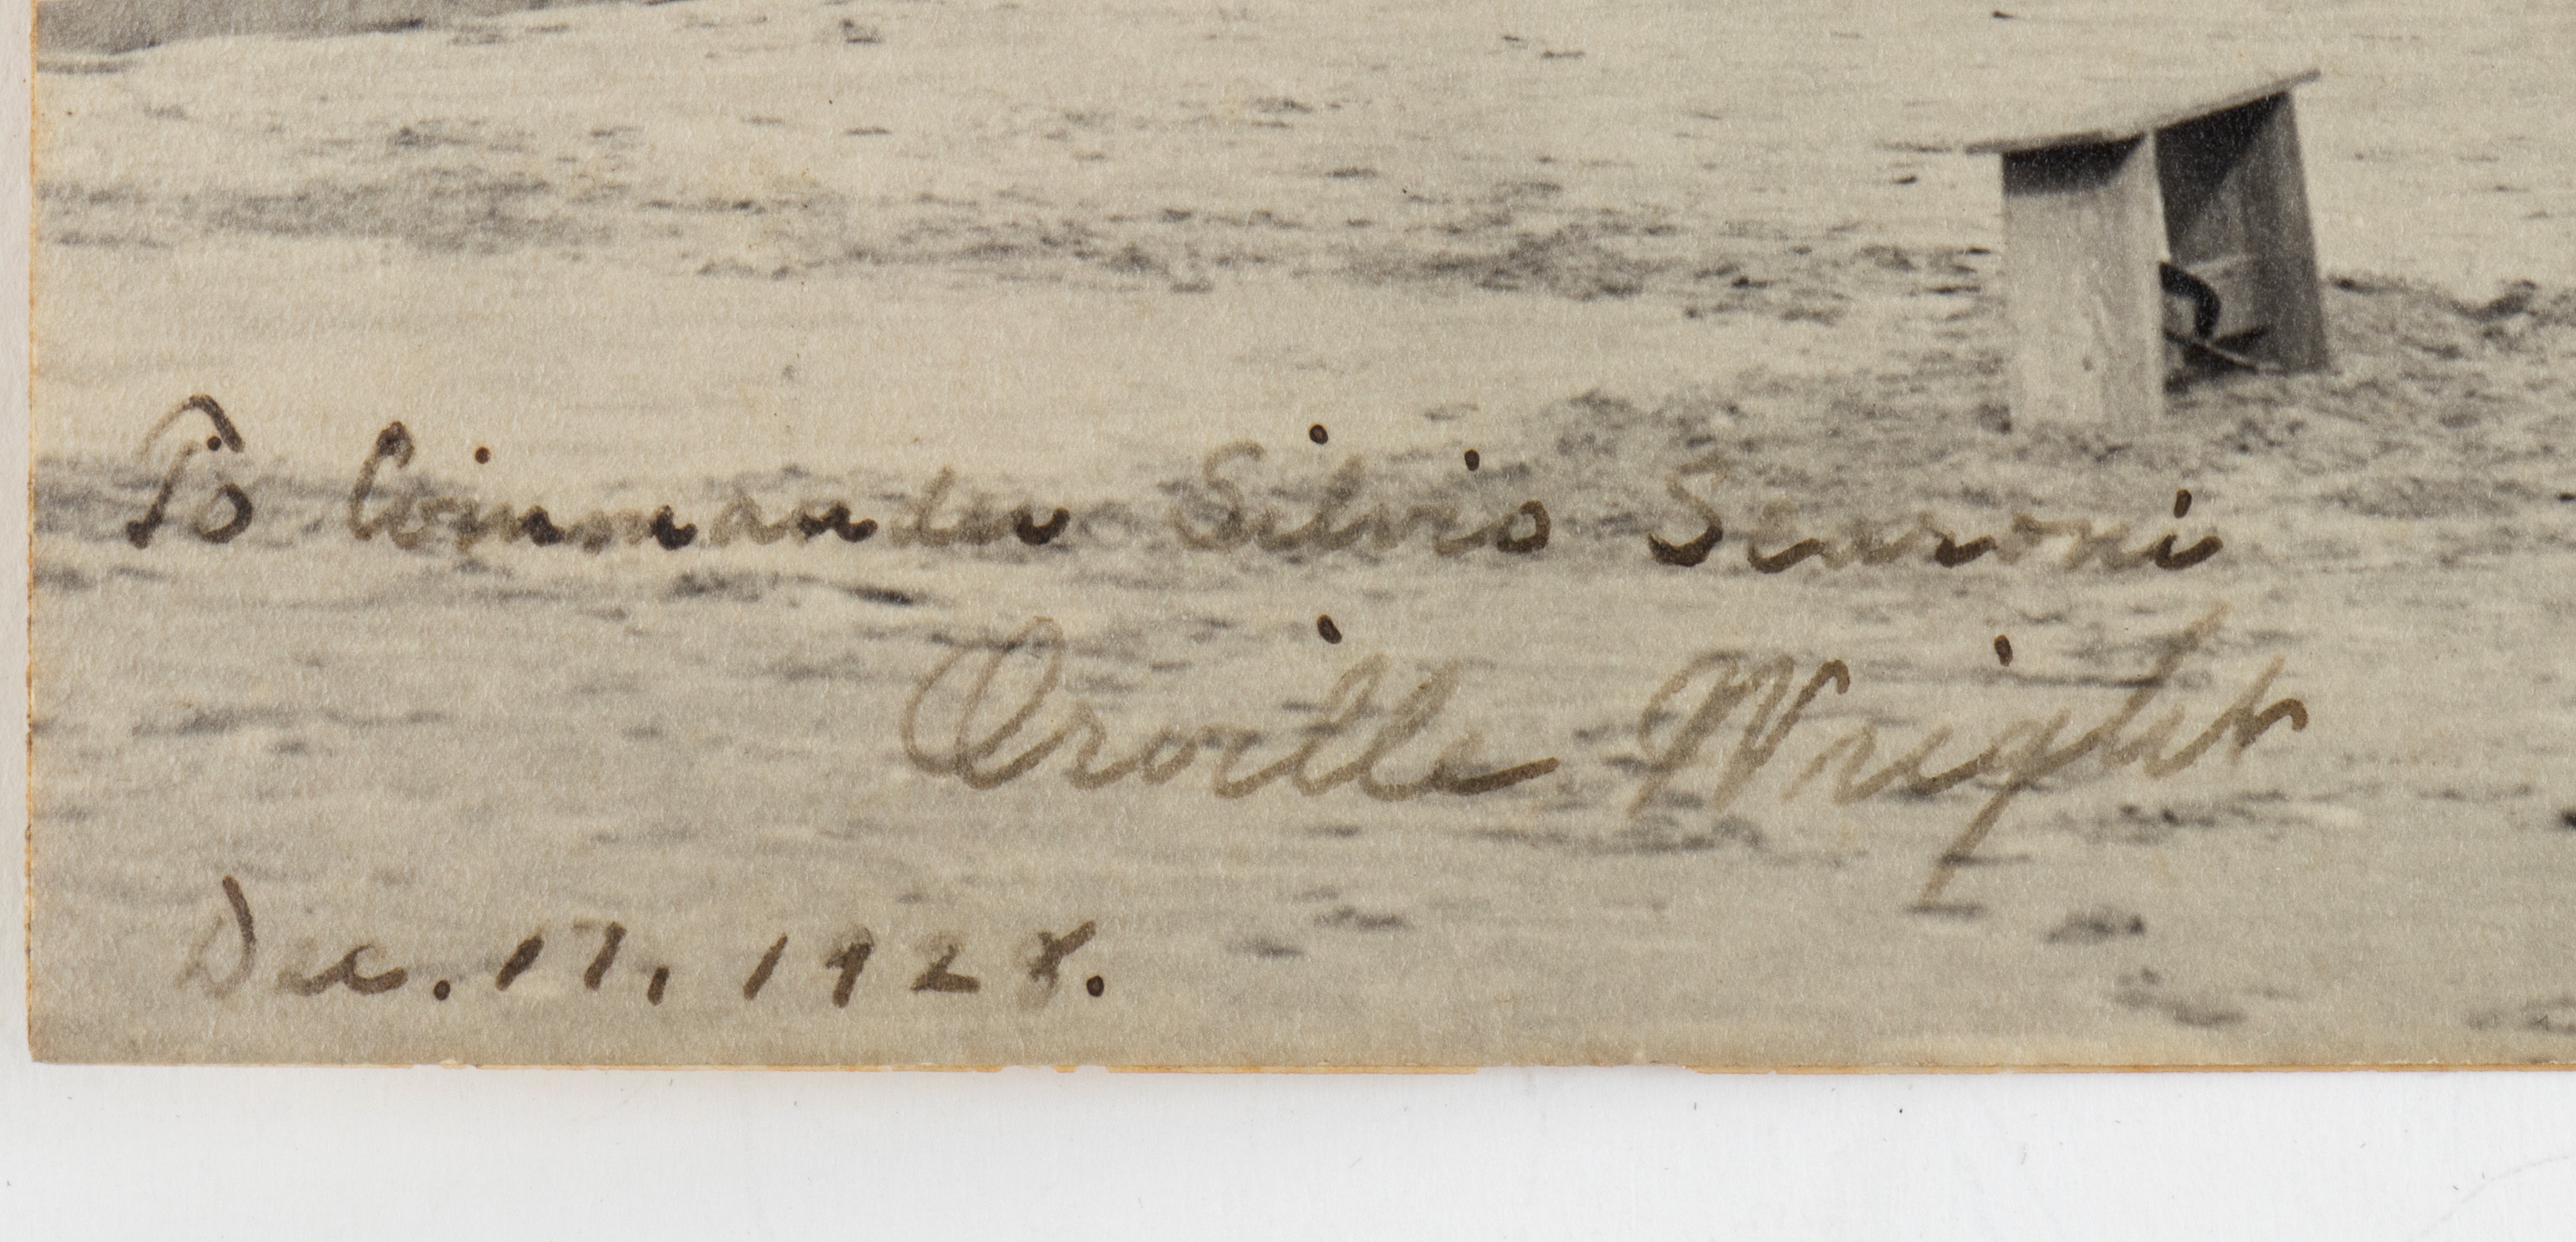 To Commander Silvio Scaroni
Orville Wright
Dec. 17, 1928.